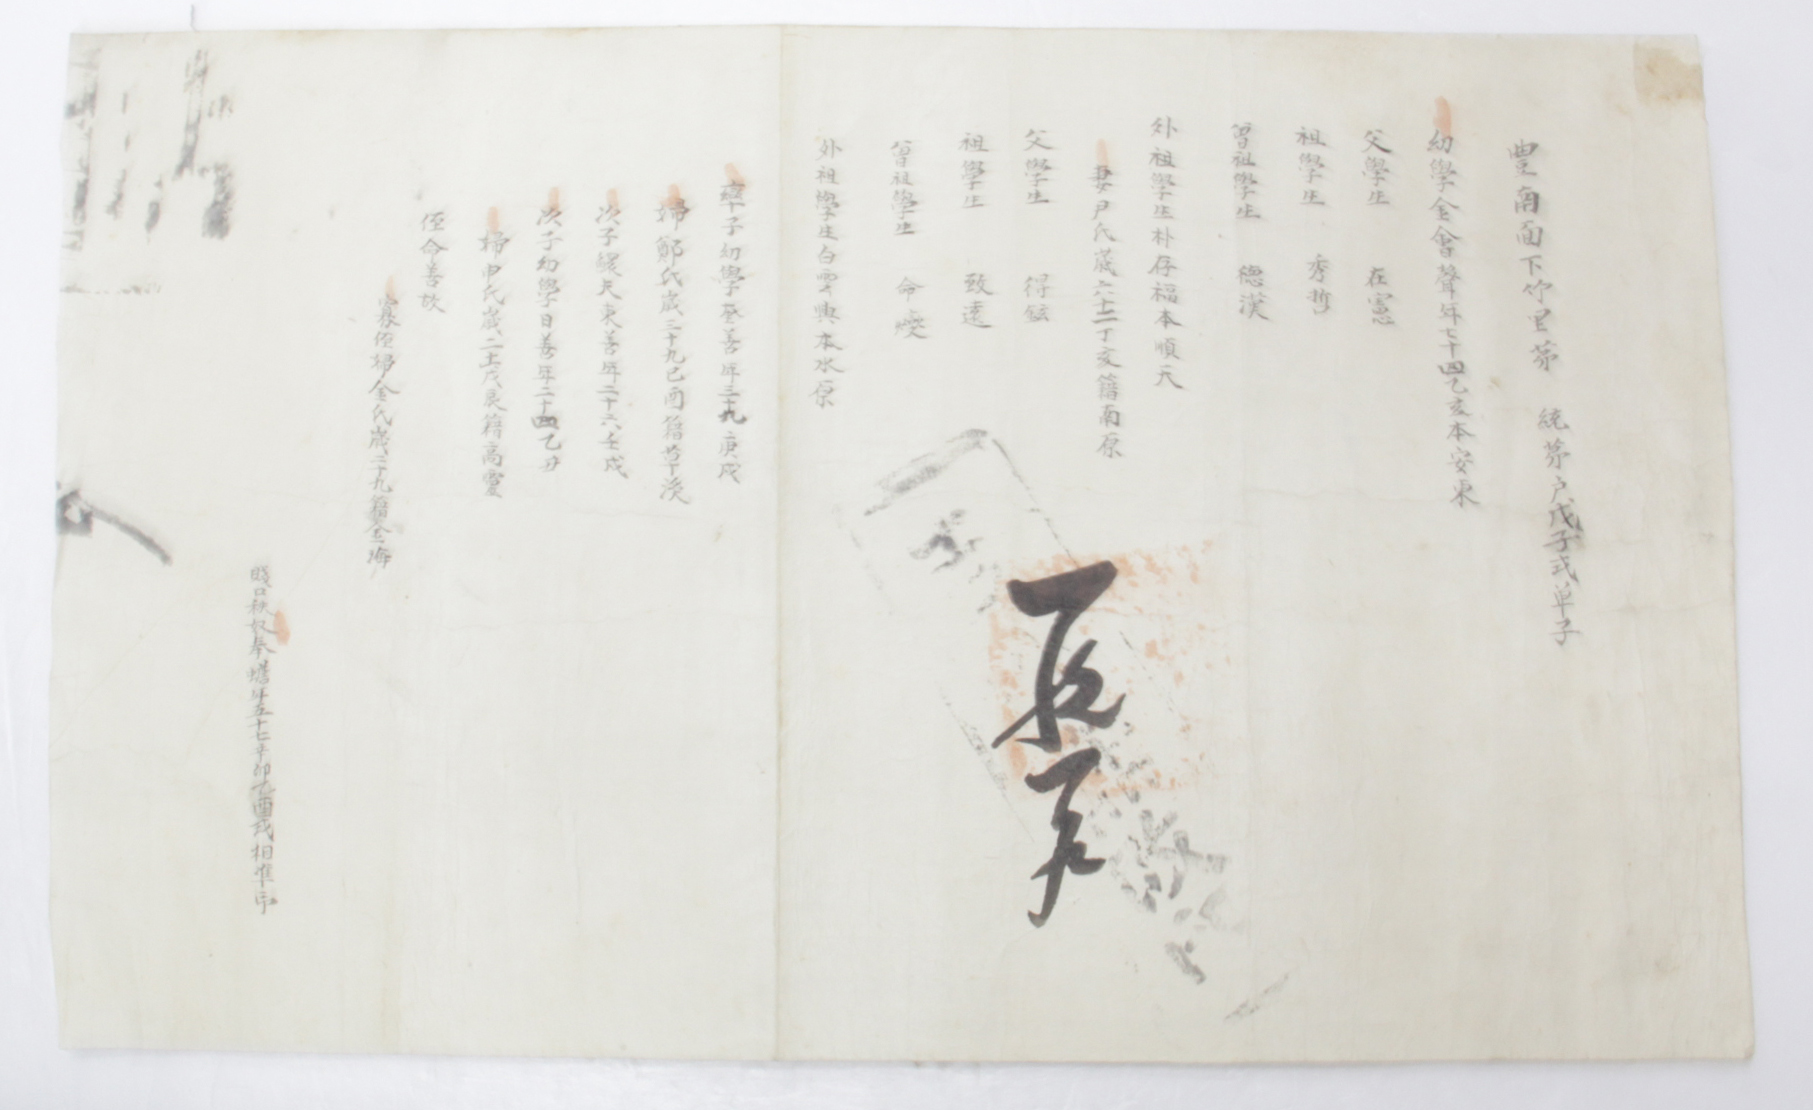 豊南面下竹里第 統第 户戊子式单子
幼學金會聲年七十四乙亥本安東
父學生 在憲
祖學生 秀哲
曾祖學生 德漢
外祖學生朴存福本順天
妻尹氏歲六十二丁亥籍南原
父學生 得鉉
祖學生 致遠
曾祖學生 命
外祖學生白雲興本水原
率子幼學 善年三十九庚戌
婦鄭氏歲三十九己酉籍草溪
次子 東善年二十六壬戌
次子幼學日善年二十四乙丑
婦申氏歲二十一戊辰籍高靈
侄命善故
寡侄婦金氏歲三十九籍金海
賤口秩奴奉 年五十七辛卯乙酉式相準印